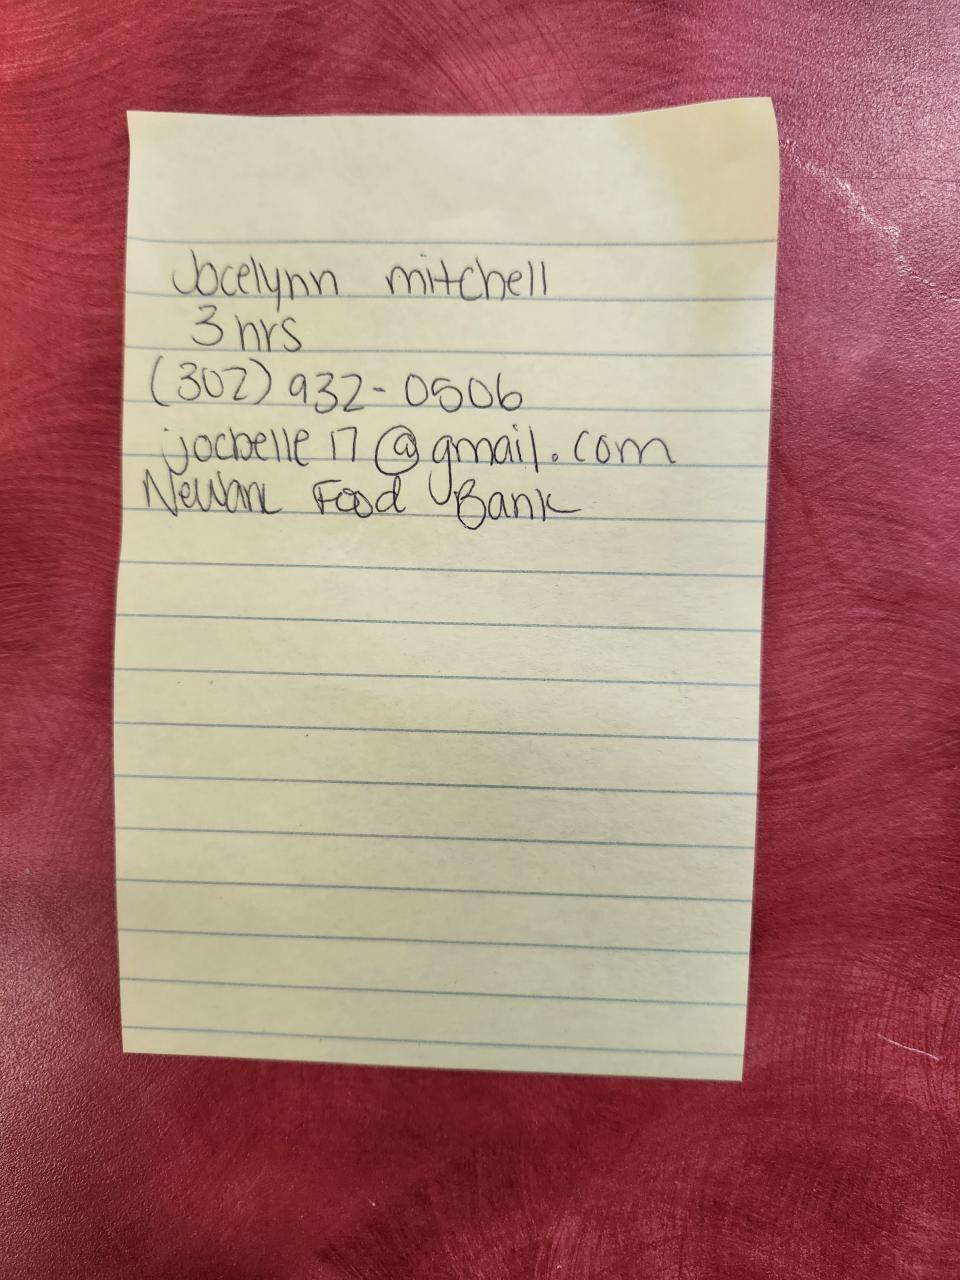 Jocelynn mitchell
3 hrs
(302) 932-0506
jocbelle17@gmail.com
Newark Food Bank